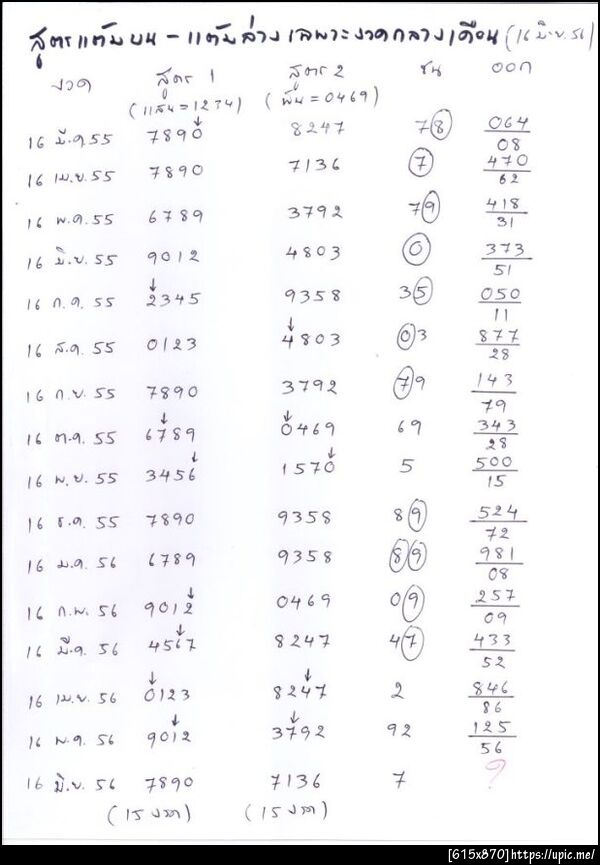 สูตรแต้มบน - แต้มล่าง เฉพาะงวดกลางเดือน (16 มิ.ย. 56)
งวด สูตร 1 สูตร 2 ชน ออก
(แสน = 1234) (พัน = 0469)
16 มี.ค. 55 7890 8247 78 064/08
16 เม.ย. 55 7890 7136 7 470/62
16 พ.ค. 55 6789 3792 79 418/31
16 มิ.ย. 55 9012 4803 0 373/51
16 ก.ค. 55 2345 9358 35 050/11
16 ส.ค. 55 0123 4803 03 877/28
16 ก.ย. 55 7890 3792 79 143/79
16 ต.ค. 55 6789 0469 69 343/28
16 พ.ย. 55 3456 1570 5 500/15
16 ธ.ค. 55 7890 9358 89 524/72
16 ม.ค. 56 6789 9358 89 981/08
16 ก.พ. 56 9012 0469 09 257/09
16 มี.ค. 56 4567 8247 47 433/52
16 เม.ย. 56 0123 8247 2 846/86
16 พ.ค. 56 9012 3792 92 125/56
16 มิ.ย. 56 7890 7136 7 ?
(15 งวด) (15 งวด)
[615x870] https://upic.me/